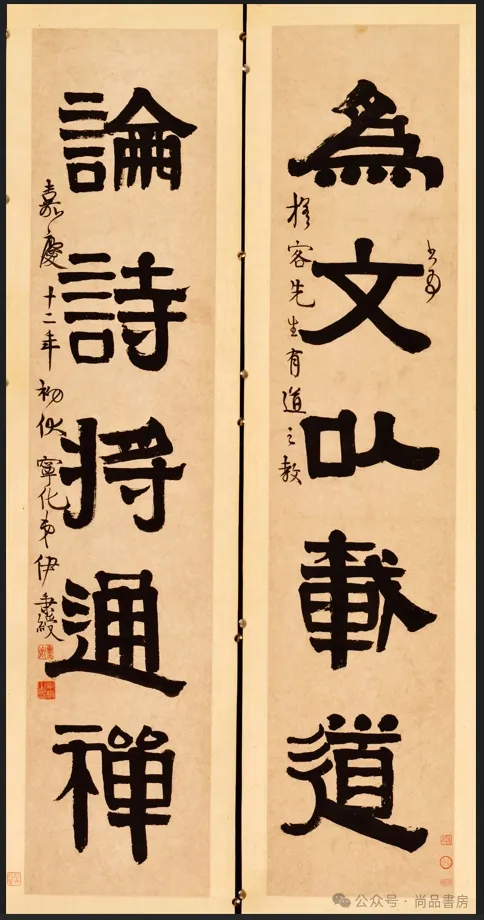 書為
為文以載道
客先生有道之教
論詩將通禪
嘉慶十二年初伏寧化弟伊秉綬
公众号 · 尚品書房